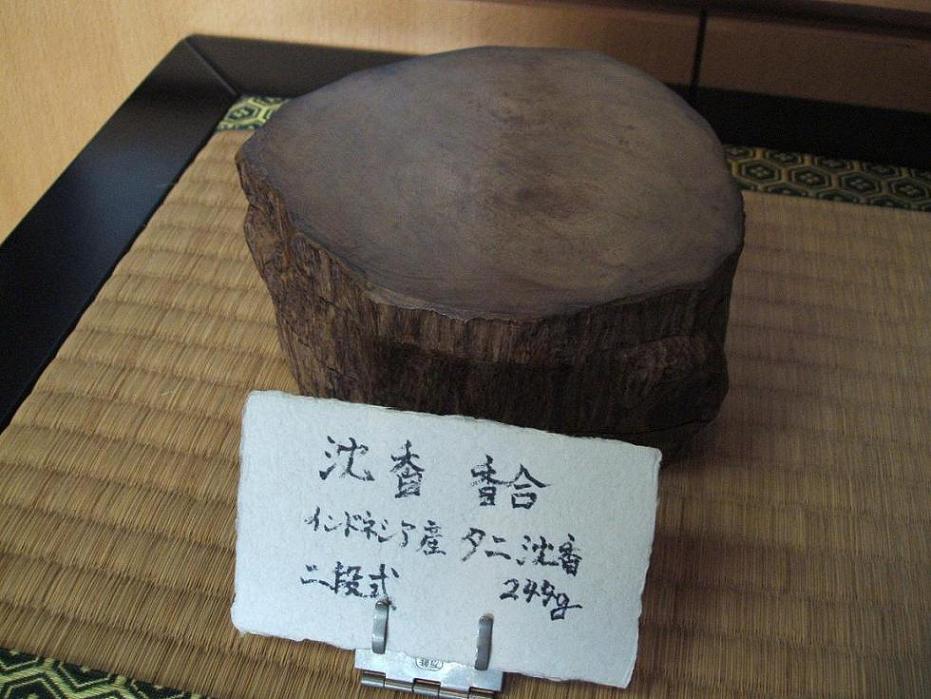 沈香 香合
インドネシア産 タニ沈香
二段式 249g